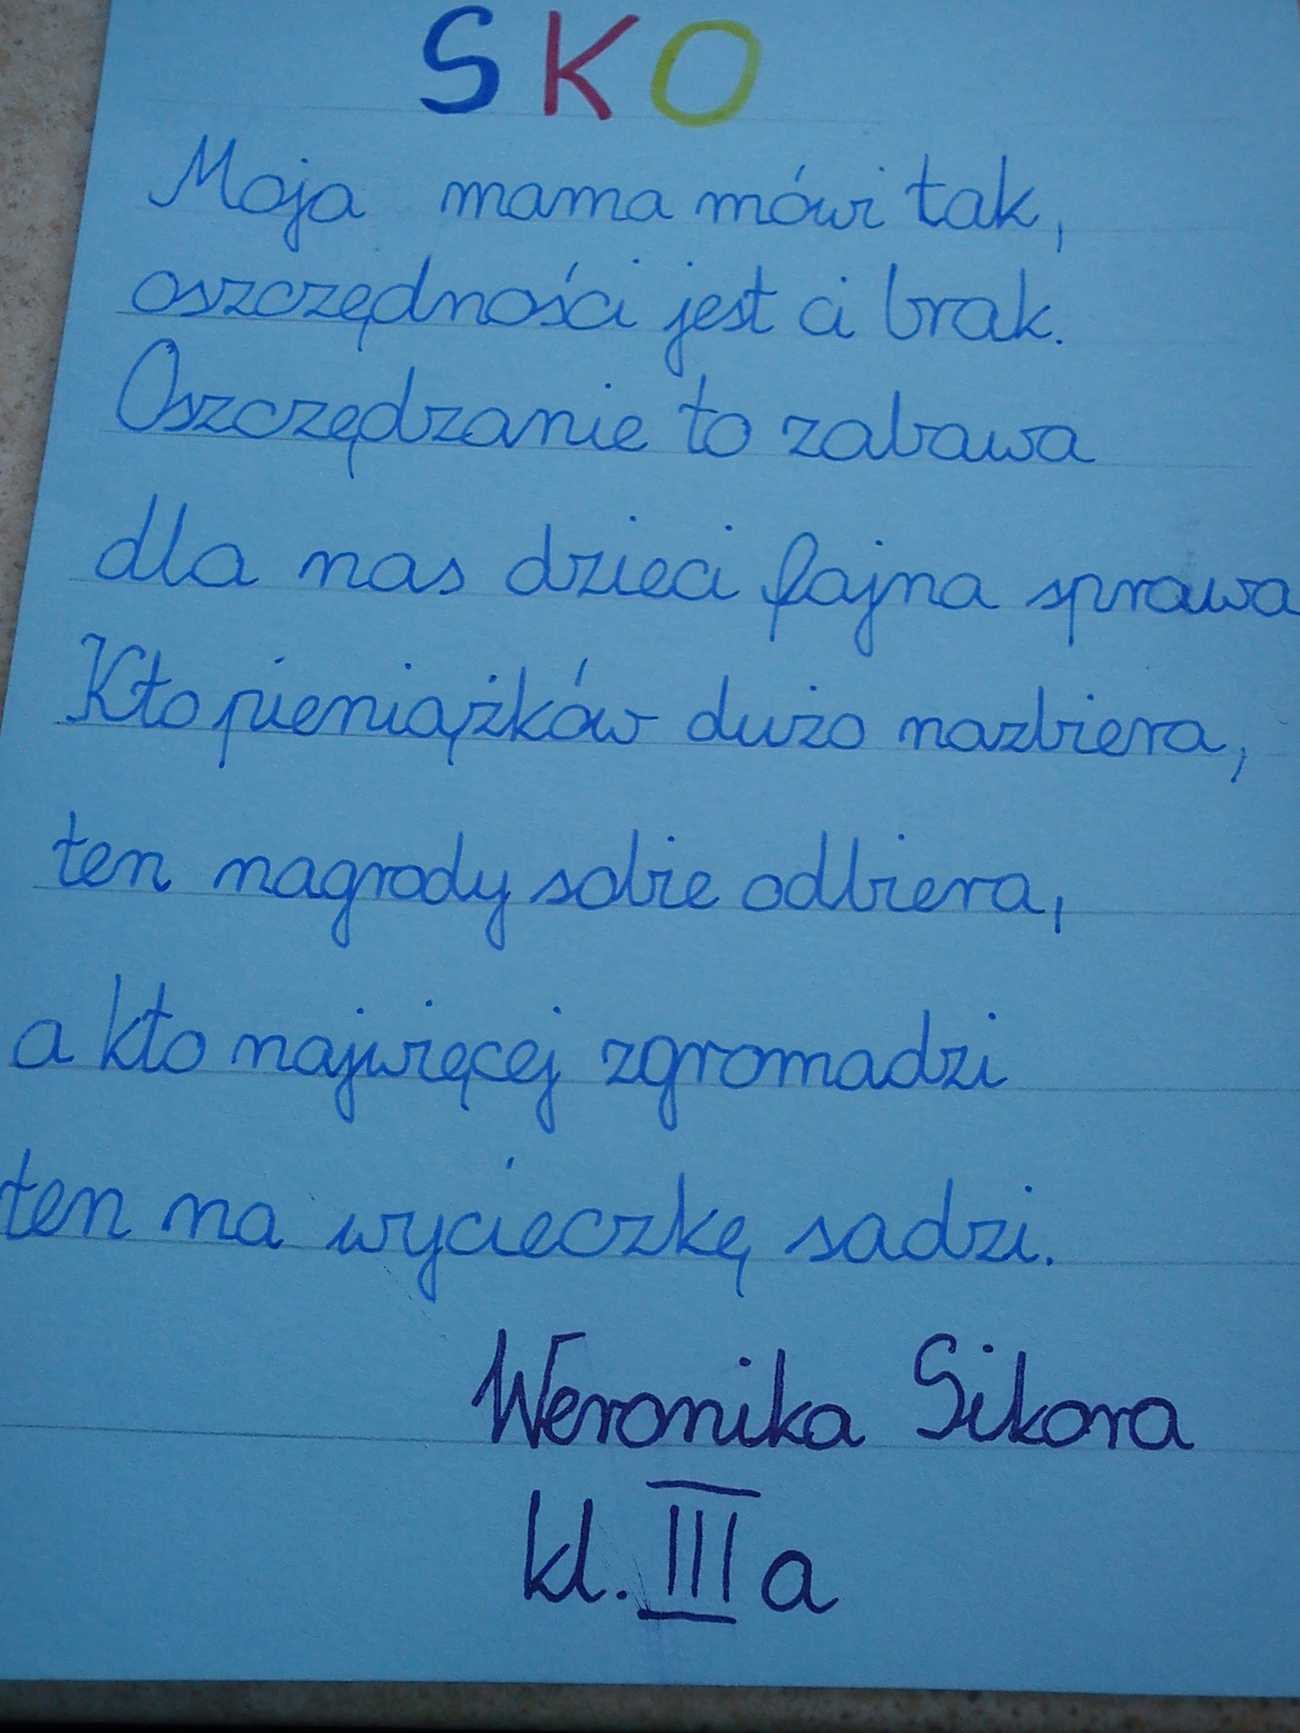 SKO
Moja mama mówi tak,
oszczędności jest ci brak.
Oszczędzanie to zabawa
dla nas dzieci fajna sprawa
Kto pieniążków dużo nazbiera,
ten nagrody sobie odbiera,
a kto najwięcej zgromadzi
ten na wycieczkę sadzi.
Weronika Sikora
kl. III a